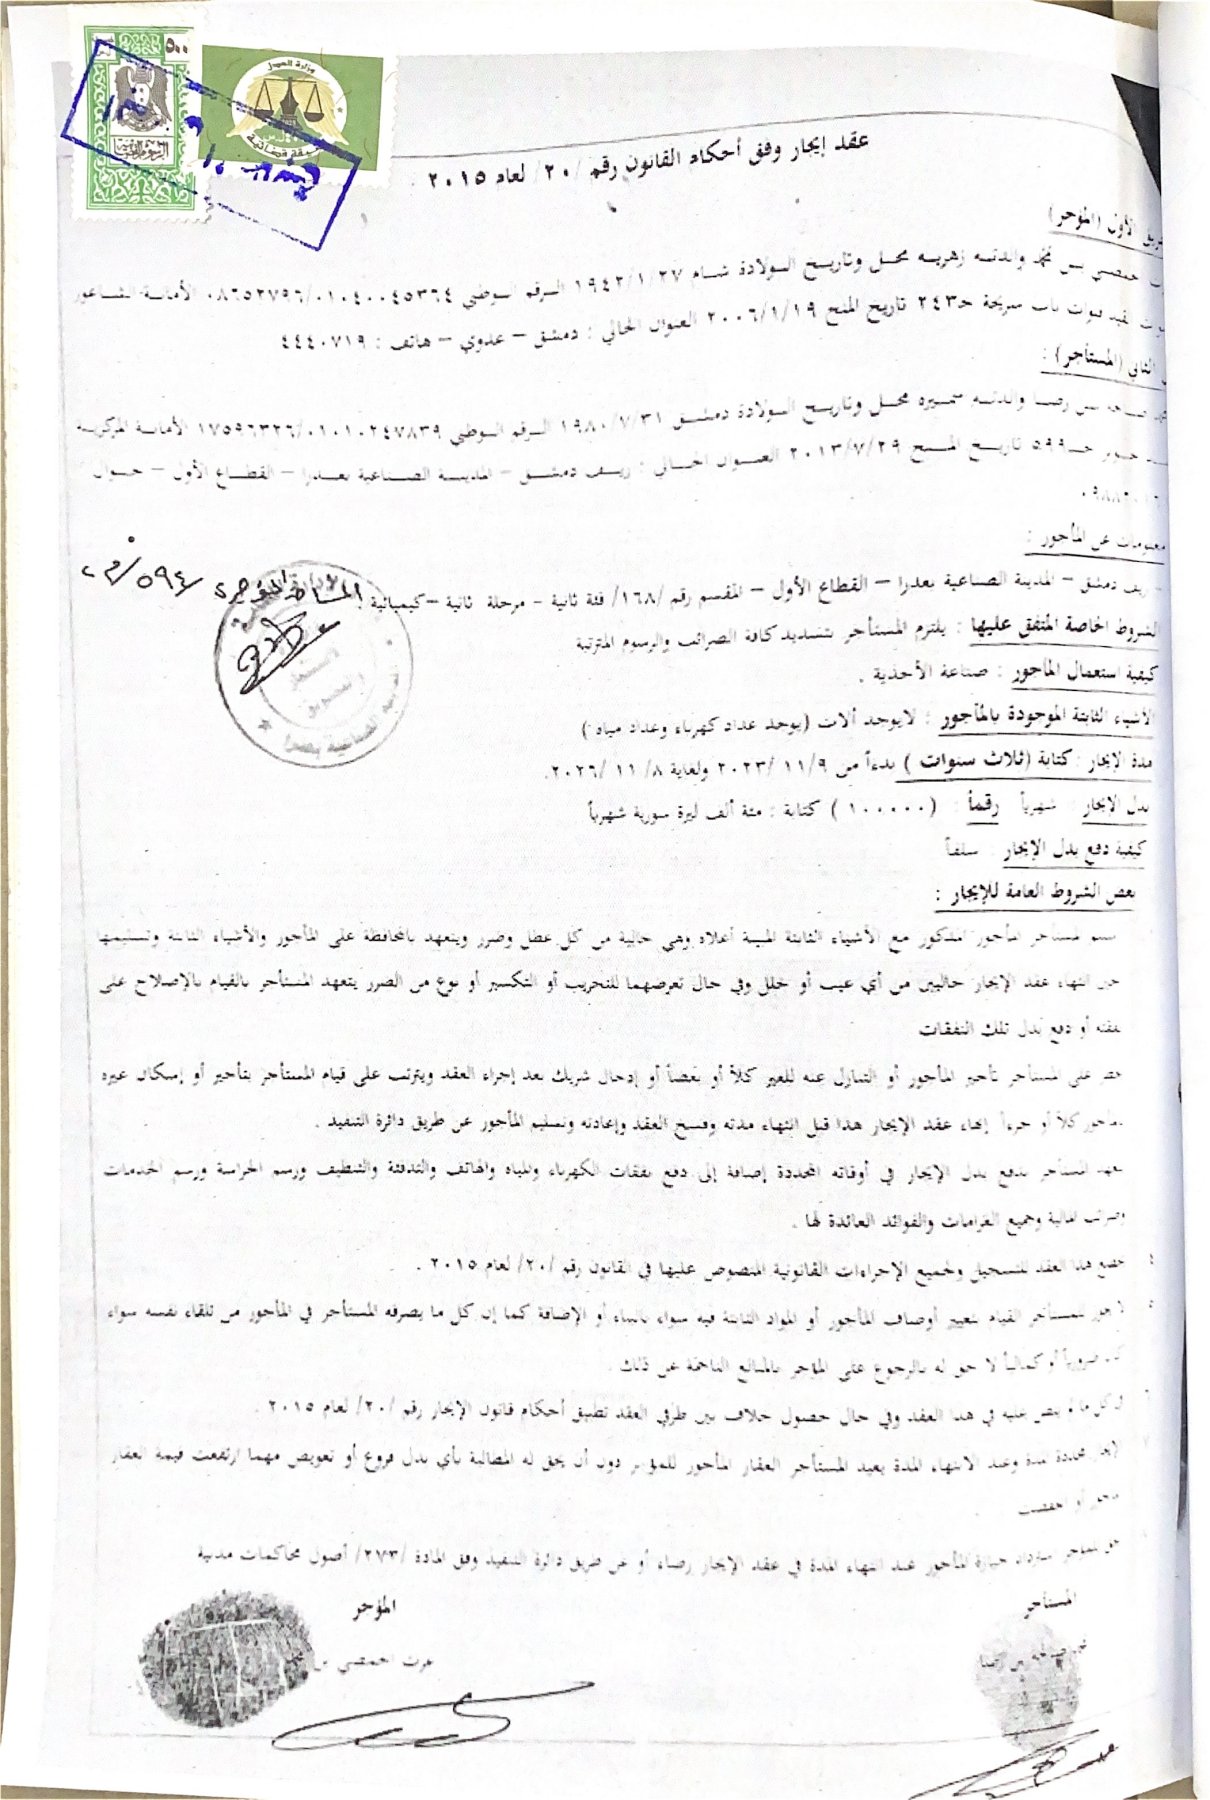 ٥٠٠
وزارة العدل
عقد إيجار وفق أحكام القانون رقم /٢٠/ لعام ٢٠١٥ .
الأول (المؤجر)
حمصي بن محمد والدته زهريه محل وتاريخ الولادة شام ١٩٤٢/١/٢٧ الرقم الوطني ٠١٠٤٠٠٤٥٣٦٤/ ٠٨٦٥٢٧٩٦ الأمانة الشاغور
قنوات باب سريجة خـ٢٤٣ تاريخ المنح ٢٠٠٦/١/١٩ العنوان الحالي : دمشق – عدوي – هاتف : ٤٤٤٠٧١٩
الثاني (المستأجر) :
بن رضا والدته سميره محل وتاريخ الولادة دمشق ١٩٨٠/٧/٣١ الرقم الوطني ٠١٠١٠٢٤٧٨٣٩/ ١٧٥٩٦٣٢٦ الأمانة المركزية
خـ٥٩٩ تاريخ المنح ٢٠١٣/٧/٢٩ العنوان الحالي : ريف دمشق – المدينة الصناعية بعدرا – القطاع الأول – جوال
معلومات عن المأجور :
ريف دمشق – المدينة الصناعية بعدرا – القطاع الأول – المقسم رقم /١٦٨/ فئة ثانية – مرحلة ثانية – كيميائية
المساحة المؤجرة ٥٩٤/ م٢
الشروط الخاصة المتفق عليها : يلتزم المستأجر بتسديد كافة الضرائب والرسوم المترتبة
كيفية استعمال المأجور : صناعة الأحذية .
الأشياء الثابتة الموجودة بالمأجور : لايوجد آلات (يوجد عداد كهرباء وعداد مياه )
مدة الإيجار : كتابة (ثلاث سنوات ) بدءاً من ١١/٩ /٢٠٢٣ ولغاية ٨/ ١١ /٢٠٢٦.
بدل الإيجار : شهرياً رقماً : ( ١٠٠٠٠٠ ) كتابة : مئة ألف ليرة سورية شهرياً
كيفية دفع بدل الإيجار : سلفاً
بعض الشروط العامة للإيجار :
المستأجر المأجور المذكور مع الأشياء الثابتة المبينة أعلاه وهي خالية من كل عطل وضرر ويتعهد بالمحافظة على المأجور والأشياء الثابتة وتسليمها
حين انتهاء عقد الإيجار خاليين من أي عيب أو خلل وفي حال تعرضهما للتخريب أو التكسير أو نوع من الضرر يتعهد المستأجر بالقيام بالإصلاح على
نفقته أو دفع بدل تلك النفقات
على المستأجر تأجير المأجور أو التنازل عنه للغير كلاً أو بعضاً أو إدخال شريك بعد إجراء العقد ويترتب على قيام المستأجر بتأجير أو إسكان غيره
كلاً أو جزءاً إنهاء عقد الإيجار هذا قبل انتهاء مدته وفسخ العقد وإعادته وتسليم المأجور عن طريق دائرة التنفيذ .
المستأجر بدفع بدل الإيجار في أوقاته المحددة إضافة إلى دفع نفقات الكهرباء والمياه والهاتف والتدفئة والتنظيف ورسم الحراسة ورسم الخدمات
المالية وجميع الغرامات والفوائد العائدة لها .
٤ هذا العقد للتسجيل ولجميع الإجراءات القانونية المنصوص عليها في القانون رقم /٢٠/ لعام ٢٠١٥ .
٥ للمستأجر القيام بتغيير أوصاف المأجور أو المواد الثابتة فيه سواء بالبناء أو الإضافة كما إن كل ما يصرفه المستأجر في المأجور من تلقاء نفسه سواء
ضرورياً أو كمالياً لا حق له بالرجوع على المؤجر بالمبالغ الناجمة عن ذلك .
في كل ما لم ينص عليه في هذا العقد وفي حال حصول خلاف بين طرفي العقد تطبق أحكام قانون الإيجار رقم /٢٠/ لعام ٢٠١٥ .
الإيجار محددة المدة وعند الانتهاء المدة يعيد المستأجر العقار المأجور للمؤجر دون أن يحق له المطالبة بأي بدل فروغ أو تعويض مهما ارتفعت قيمة العقار
استرداد حيازة المأجور عند انتهاء المدة في عقد الإيجار رضاء أو عن طريق دائرة التنفيذ وفق المادة /٢٧٣/ أصول محاكمات مدنية
المستأجر
المؤجر
الحمصي بن